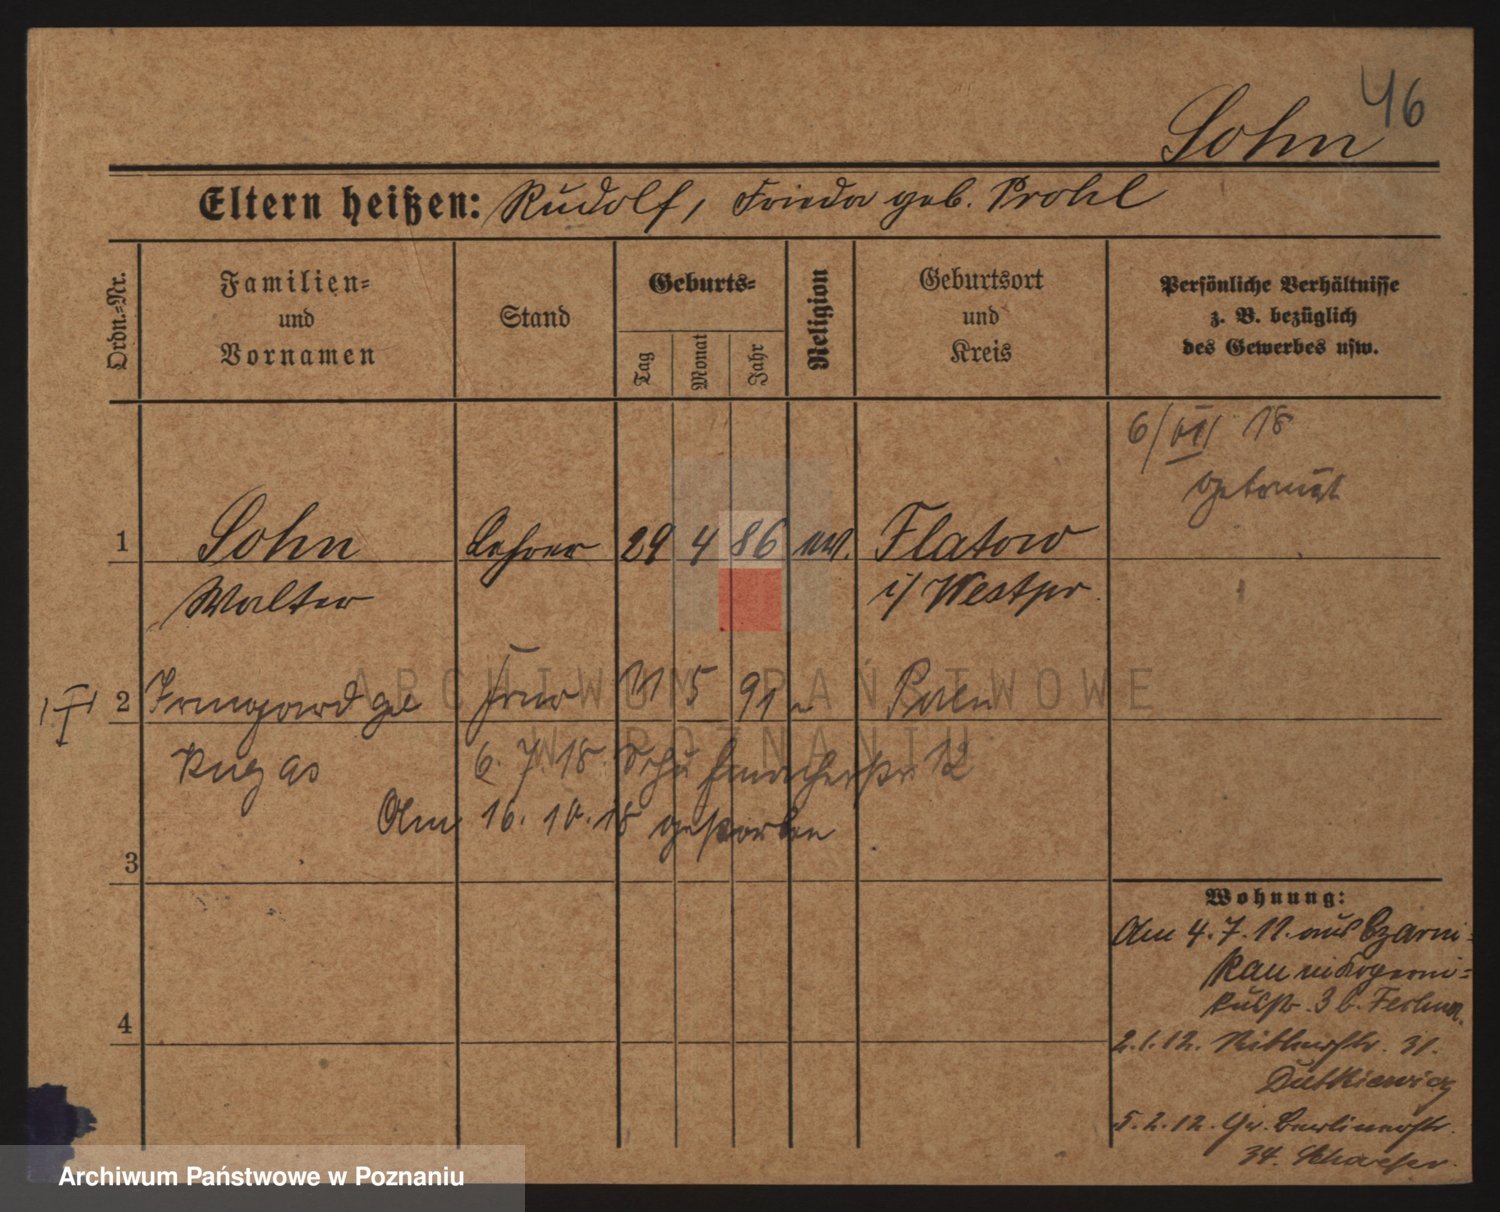 46
Sohn
Eltern heißen: Rudolf, Frieda geb. Prohl
Ordn.=Nr.
Familien=
und
Vornamen
Stand
Geburts=
Tag
Monat
Jahr
Religion
Geburtsort
und
Kreis
Persönliche Verhältnisse
z. B. bezüglich
des Gewerbes usw.
6/VII 18
getraut
1 Sohn Lehrer 29 4 86 ev. Flatow
Walter i/ Westpr.
2 Irmgard ge Frau 31 5 91 Posen
6. 7. 18. Schuhmacherstr 12
Am 16. 10. 18 gestorben
3
4
Wohnung:
Am 4. 7. 11. aus Czarni=
kau
kusstr. 3 b.
2.1.12. Ritterstr. 31.
Dutkiewicz
5. 2. 12. Gr. Berlinerstr.
34. Schaefer.
ARCHIWUM PAŃSTWOWE
W POZNANIU
Archiwum Państwowe w Poznaniu